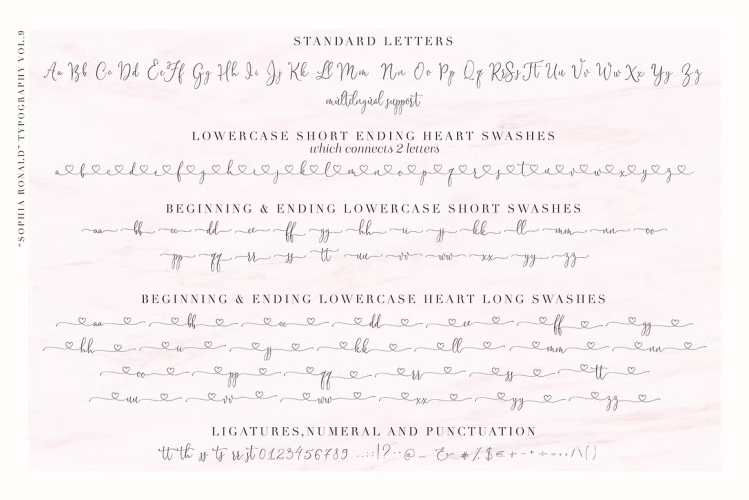 "SOPHIA RONALD" TYPOGRAPHY VOL.9
STANDARD LETTERS
Aa Bb Cc Dd Ee Ff Gg Hh Ii Jj Kk Ll Mm Nn Oo Pp Qq Rr Ss Tt Uu Vv Ww Xx Yy Zz
multilngual support
LOWERCASE SHORT ENDING HEART SWASHES
which connects 2 letters
a b c d e f g h i j k l m n o p q r s t u v w x y z
BEGINNING & ENDING LOWERCASE SHORT SWASHES
aa bb cc dd ee ff gg hh ii jj kk ll mm nn oo
pp qq rr ss tt uu vv ww xx yy zz
BEGINNING & ENDING LOWERCASE HEART LONG SWASHES
aa bb cc dd ee ff gg
hh ii jj kk ll mm nn
oo pp qq rr ss tt
uu vv ww xx yy zz
LIGATURES,NUMERAL AND PUNCTUATION
tt th ss ts rr st 0123456789 ..:;|?··@_ & #%$€+-*÷=··/\()